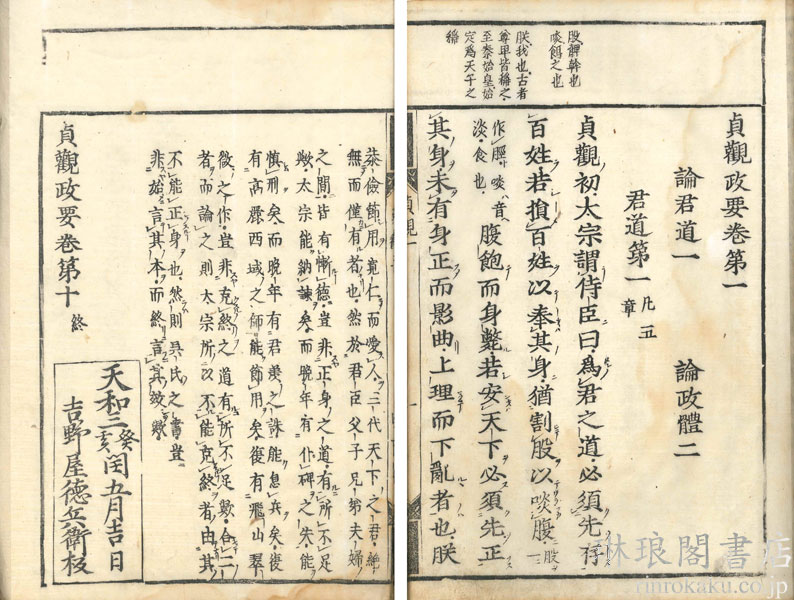 股髀幹也
啖餌之也
朕我也古者
尊卑皆稱之
至秦始皇始
定爲天子之
稱
貞觀政要卷第一
論君道一　論政體二
君道第一 凡五章
貞觀初太宗謂侍臣曰爲君之道必須先存
百姓若損百姓以奉其身猶割股以啖腹 股一
作脛啖音淡食也 腹飽而身斃若安天下必須先正
其身未有身正而影曲上理而下亂者也朕
恭儉節用寬仁而愛人三代天下之君絶
無而僅有者也然於君臣父子兄弟夫婦
之間皆有慚德豈非正身之道有所不足
歟太宗能納諫矣而晚年有仆碑之失能
慎刑矣而晚年有君羨之誅能息兵矣復
有高麗西域之師能節用矣復有飛山翠
微之作豈非克終之道有所不足歟合二
者而論之則太宗所以不能克終者由其
不能正身也然則吳氏之書豈
非始言其本而終言其效歟
貞觀政要卷第十 終
天和三癸亥閏五月吉日
吉野屋德兵衛板
琳琅閣書店
rinrokaku.co.jp